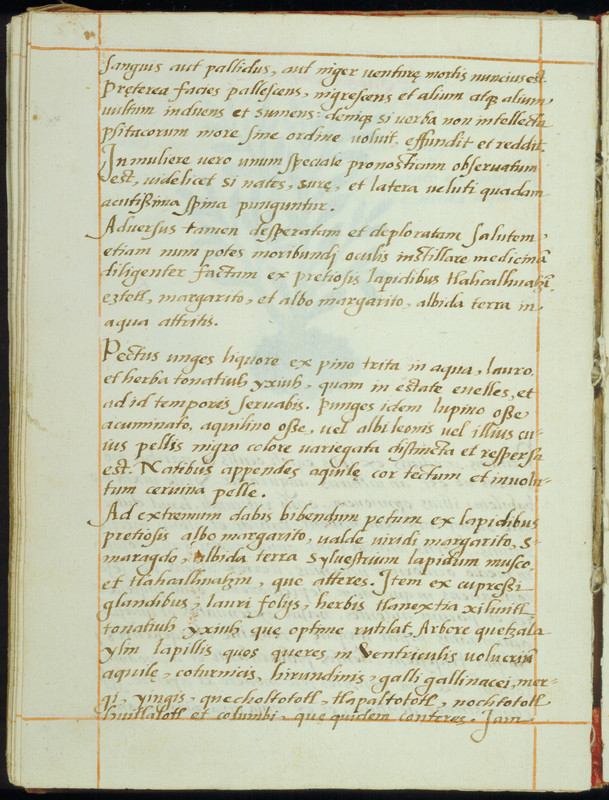 sanguis aut pallidus, aut niger venturę mortis nuncius est.
Pręterea facies pallescens, nigrescens et alium atq; alium
vultum induens et sumens: deniq; si verba non intellecta
psitacorum more sine ordine voluit, effundit et reddit.
In muliere vero unum speciale pronosticum observatum
est, videlicet si nates, surę, et latera veluti quadam
acutissima spina punguntur.
Adversus tamen desperatam et deploratam salutem,
etiam num potes moribundi oculis instillare medicinā
diligenter factam ex pretiosis lapidibus tlahcalhuatzī,
eztetl, margarito, et albo margarito, albida terra in
aqua attritis.
Pectus unges liquore ex pino trita in aqua, lauro,
et herba tonatiuh yxiuh, quam in estate evelles, et
ad id temporis servabis. Punges idem lupino osse
acuminato, aquilino osse, vel albi leonis vel illius cu-
ius pellis nigro colore variegata distincta et respersa
est. Natibus appendes aquilę cor tectum et involu-
tum cervina pelle.
Ad extremum dabis bibendum potum ex lapidibus
pretiosis albo margarito, valde viridi margarito, s-
maragdo, albida terra sylvestrium lapidum musco
et tlahcalhuatzin, que atteres. Item ex cupressi
glandibus, lauri folijs, herbis tlanextia xihuitl
tonatiuh yxiuh quę optime rutilat, Arbore quetzala
ylin lapillis quos queres in ventriculis volucrum
aquilę, coturnicis, hirundinis, galli gallinacei, mer-
gi, yingis, quecholtototl, tlapaltototl, nochtototl
huitlalotl et columbi, que quidem conteres. Iam